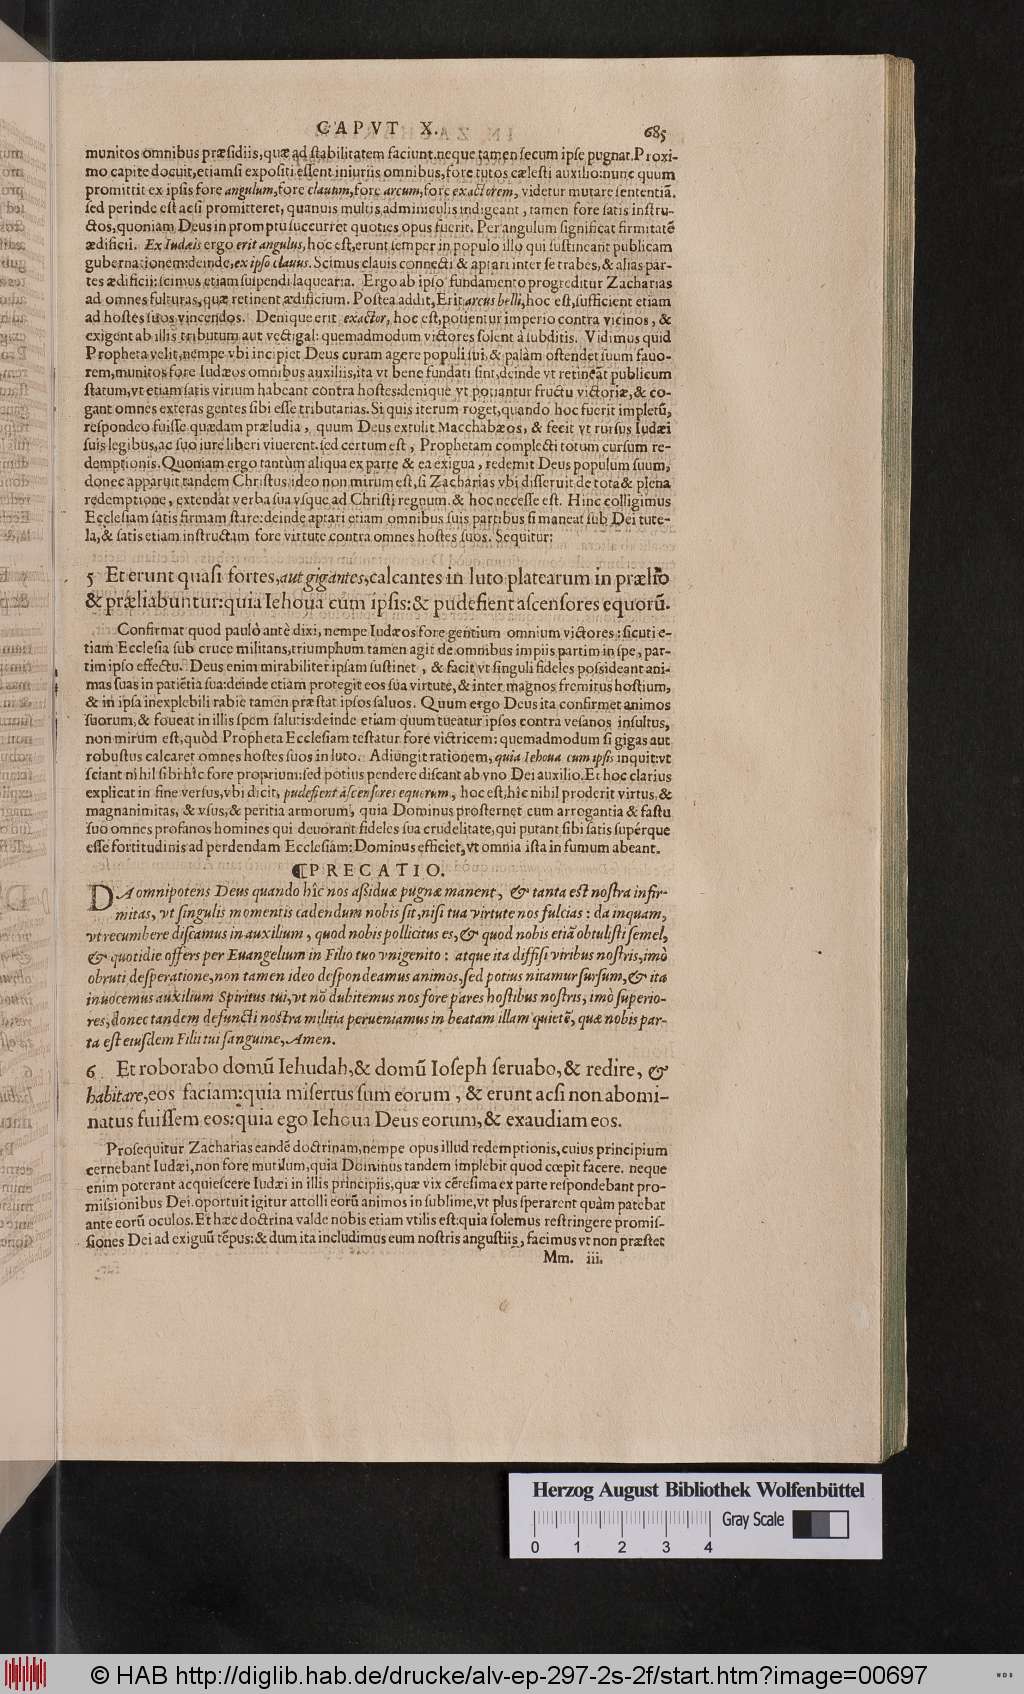 CAPVT X. 685
munitos omnibus præsidiis, quæ ad stabilitatem faciunt. neque tamen secum ipse pugnat. Proxi-
mo capite docuit, etiamsi expositi essent iniuriis omnibus, fore tutos cælesti auxilio: nunc quum
promittit ex ipsis fore angulum, fore clauum, fore arcum, fore exactorem, videtur mutare sententiã.
sed perinde est acsi promitteret, quanuis multis adminiculis indigeant, tamen fore satis instru-
ctos, quoniam Deus in promptu succurret quoties opus fuerit. Per angulum significat firmitatẽ
ædificii. Ex Iudæis ergo erit angulus, hoc est, erunt semper in populo illo qui sustineant publicam
gubernationem: deinde, ex ipso clauus. Scimus clauis connecti & aptari inter se trabes, & alias par-
tes ædificii: scimus etiam suspendi laquearia. Ergo ab ipso fundamento progreditur Zacharias
ad omnes fulturas, quæ retinent ædificium. Postea addit, Erit arcus belli, hoc est, sufficient etiam
ad hostes suos vincendos. Denique erit exactor, hoc est, potientur imperio contra vicinos, &
exigent ab illis tributum aut vectigal: quemadmodum victores solent à subditis. Vidimus quid
Propheta velit, nempe vbi incipiet Deus curam agere populi sui, & palàm ostendet suum fauo-
rem, munitos fore Iudæos omnibus auxiliis, ita vt bene fundati sint, deinde vt retineãt publicum
statum, vt etiam satis virium habeant contra hostes: denique vt potiantur fructu victoriæ, & co-
gant omnes exteras gentes sibi esse tributarias. Si quis iterum roget, quando hoc fuerit impletũ,
respondeo fuisse quædam præludia, quum Deus extulit Macchabæos, & fecit vt rursus Iudæi
suis legibus, ac suo iure liberi viuerent. sed certum est, Prophetam complecti totum cursum re-
demptionis. Quoniam ergo tantùm aliqua ex parte & ea exigua, redemit Deus populum suum,
donec apparuit tandem Christus, ideo non mirum est, si Zacharias vbi disseruit de tota & plena
redemptione, extendat verba sua vsque ad Christi regnum. & hoc necesse est. Hinc colligimus
Ecclesiam satis firmam stare: deinde aptari etiam omnibus suis partibus si maneat sub Dei tute-
la, & satis etiam instructam fore virtute contra omnes hostes suos. Sequitur:
5 Et erunt quasi fortes, aut gigantes, calcantes in luto platearum in prælio
& præliabuntur: quia Iehoua cum ipsis: & pudefient ascensores equorũ.
Confirmat quod paulò antè dixi, nempe Iudæos fore gentium omnium victores: sicuti e-
tiam Ecclesia sub cruce militans, triumphum tamen agit de omnibus impiis partim in spe, par-
tim ipso effectu. Deus enim mirabiliter ipsam sustinet, & facit vt singuli fideles possideant ani-
mas suas in patiẽtia sua: deinde etiam protegit eos sua virtute, & inter magnos fremitus hostium,
& in ipsa inexplebili rabie tamen præstat ipsos saluos. Quum ergo Deus ita confirmet animos
suorum, & foueat in illis spem salutis: deinde etiam quum tueatur ipsos contra vesanos insultus,
non mirum est, quòd Propheta Ecclesiam testatur fore victricem: quemadmodum si gigas aut
robustus calcaret omnes hostes suos in luto. Adiungit rationem, quia Iehoua cum ipsis inquit: vt
sciant nihil sibi hîc fore proprium: sed potius pendere discant ab vno Dei auxilio. Et hoc clarius
explicat in fine versus, vbi dicit, pudefient ascensores equorum, hoc est, hîc nihil proderit virtus, &
magnanimitas, & vsus, & peritia armorum, quia Dominus prosternet cum arrogantia & fastu
suo omnes profanos homines qui deuorant fideles sua crudelitate, qui putant sibi satis supérque
esse fortitudinis ad perdendam Ecclesiam: Dominus efficiet, vt omnia ista in fumum abeant.
¶PRECATIO.
DA omnipotens Deus quando hîc nos assiduæ pugnæ manent, & tanta est nostra infir-
mitas, vt singulis momentis cadendum nobis sit, nisi tua virtute nos fulcias: da inquam,
vt recumbere discamus in auxilium, quod nobis pollicitus es, & quod nobis etiã obtulisti semel,
& quotidie offers per Euangelium in Filio tuo vnigenito: atque ita diffisi viribus nostris, imò
obruti desperatione, non tamen ideo despondeamus animos, sed potius nitamur sursum, & ita
inuocemus auxilium Spiritus tui, vt nõ dubitemus nos fore pares hostibus nostris, imò superio-
res, donec tandem defuncti nostra militia perueniamus in beatam illam quietẽ, quæ nobis par-
ta est eiusdem Filii tui sanguine, Amen.
6 Et roborabo domũ Iehudah, & domũ Ioseph seruabo, & redire, &
habitare, eos faciam: quia misertus sum eorum, & erunt acsi non abomi-
natus fuissem eos: quia ego Iehoua Deus eorum, & exaudiam eos.
Prosequitur Zacharias eandẽ doctrinam, nempe opus illud redemptionis, cuius principium
cernebant Iudæi, non fore mutilum, quia Dominus tandem implebit quod cœpit facere. neque
enim poterant acquiescere Iudæi in illis principiis, quæ vix cẽtesima ex parte respondebant pro-
missionibus Dei. oportuit igitur attolli eorũ animos in sublime, vt plus sperarent quàm patebat
ante eorũ oculos. Et hæc doctrina valde nobis etiam vtilis est: quia solemus restringere promis-
siones Dei ad exiguũ tẽpus: & dum ita includimus eum nostris angustiis, facimus vt non præstet
Mm. iii.
Herzog August Bibliothek Wolfenbüttel
Gray Scale
0 1 2 3 4
© HAB http://diglib.hab.de/drucke/alv-ep-297-2s-2f/start.htm?image=00697